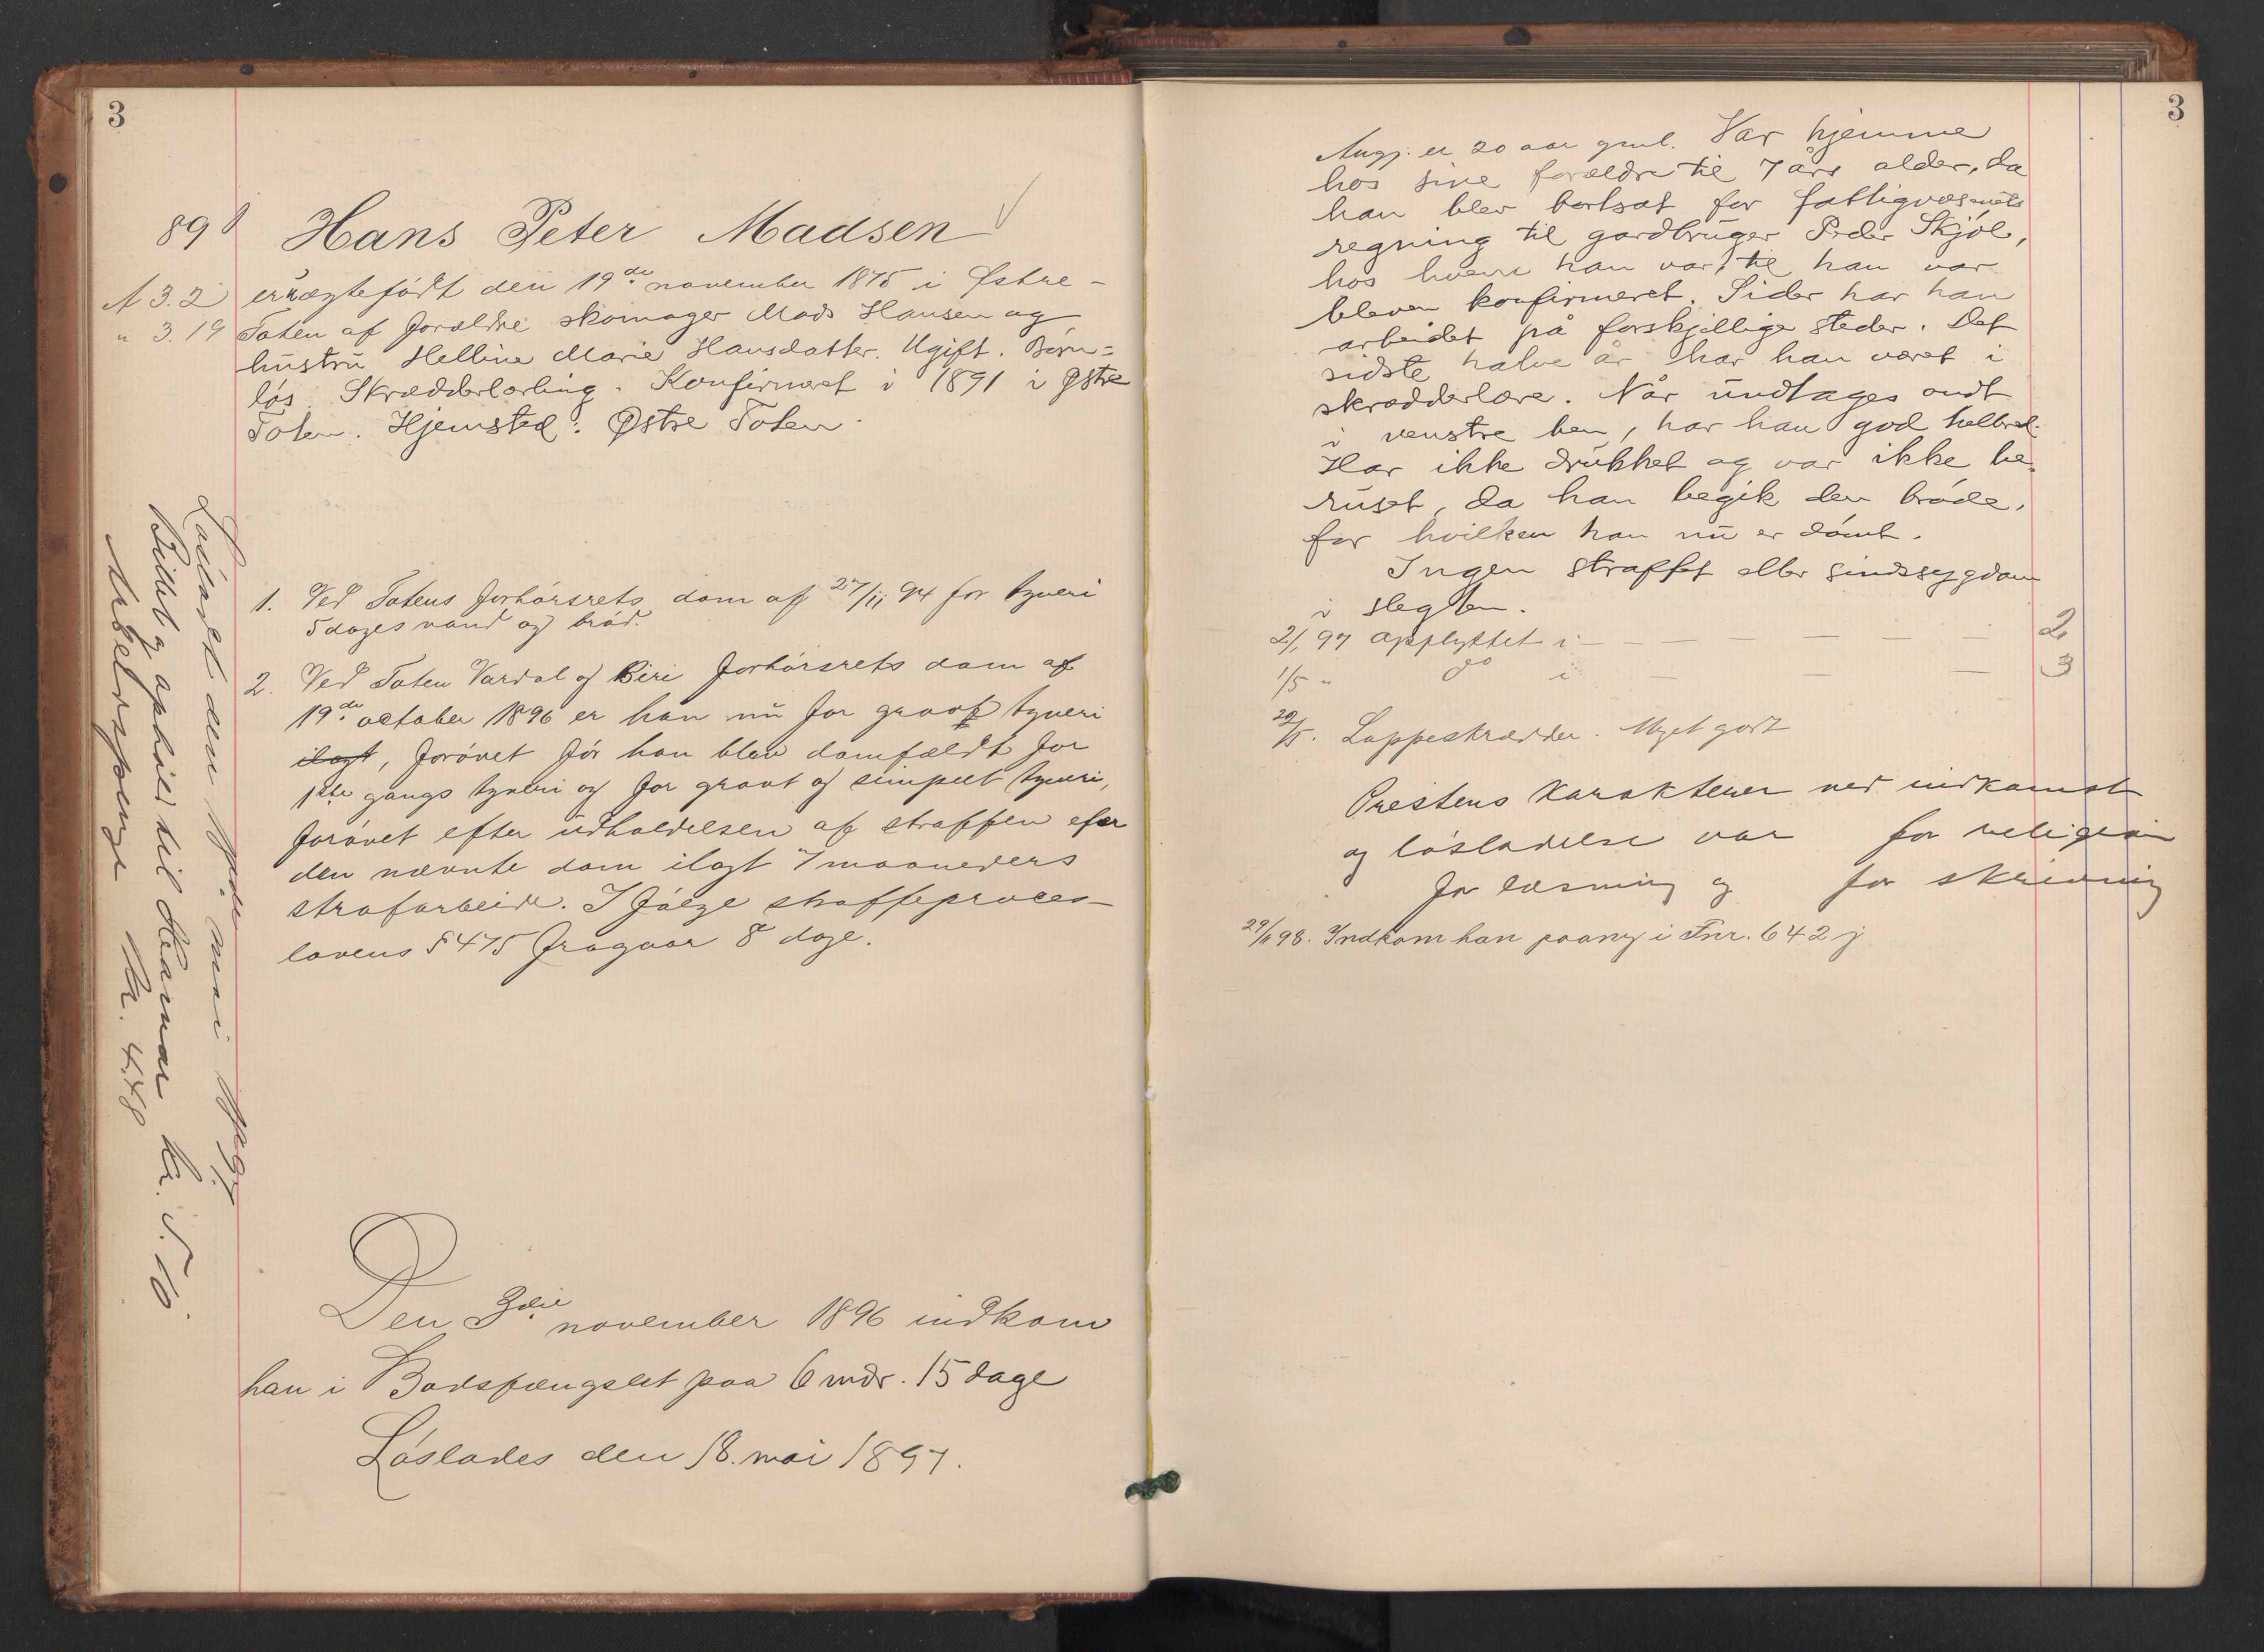 3
89 Hans Peter Madsen
A 3.2 er ægtefødt den 19de november 1875 i Østre-
" 3.19 Toten af forældre skomager Mads Hansen og
hustru Helline Marie Hansdatter. Ugift. Børn=
løs. Skrædderlærling. Konfirmeret i 1891 i Østre
Toten. Hjemsted: Østre Toten.
1. Ved Totens forhørsrets dom af 27/11 94 for tyveri
5 dages vand og brød.
2. Ved Toten Vardal og Biri forhørsrets dom af
19de october 1896 er han nu for grovt tyveri
ilagt, forøvet før han blev domfældt for
1ste gangs tyveri og for grovt og simpelt tyveri,
forøvet efter udholdelsen af straffen efter
den nævnte dom ilagt 7 maaneders
strafarbeide. Ifølge straffeproces-
lovens § 475 fragaar 8 dage.
Den 3die november 1896 indkom
han i Bodsfængslet paa 6 mdr. 15 dage
Løslades den 18. mai 1897.
Løsladt den 18de mai 1897
Billet og ophold til Hamar kr. 5.10.
Arbeidspenge kr. 4.48
3
Angj. er 20 aar gml. Var hjemme
hos sine forældre til 7 års alder, da
han blev bortsat for fattigvæsenets
regning til gardbruger Peder Skjøl,
hos hvem han var, til han var
bleven konfirmeret. Siden har han
arbeidet på forskjellige steder. Det
sidste halve år har han været i
skrædderlære. Når undtages ondt
i venstre ben, har han god helbred.
Har ikke drukket og var ikke be-
ruset, da han begik den brøde,
for hvilken han nu er dømt.
Ingen straffet eller sindssygdom
i slegten.
2/1 97 opflyttet i — — — — — 2
1/5 " do i — — — 3
20/5. Lappeskrædder. Meget godt
Prestens karakterer ved indkomst
og løsladelse var for religion
for læsning og for skrivning
29/11 98. Indkom han paany i Fnr. 642 j